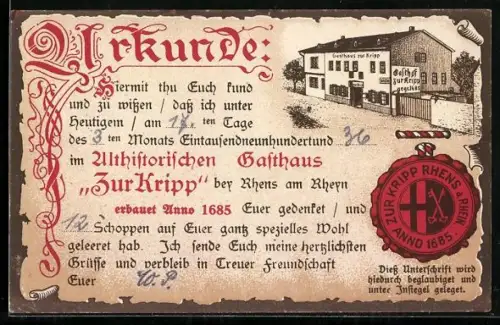 Urkunde:
Hiermit thu Euch kund
und zu wißen / daß ich unter
Heutigem / am 17. ten Tage
des 3 ten Monats Eintausendneunhundertund 36
im Althistorischen Gasthaus
„Zur Kripp" bey Rhens am Rheyn
erbauet Anno 1685 Euer gedenket / und
12 Schoppen auf Euer gantz spezielles Wohl
geleeret hab. Ich sende Euch meine hertzlichsten
Grüsse und verbleib in Treuer Freundschaft
Euer W. P.
Gasthaus zur Kripp
Gasthof
zur Kripp
ZUR KRIPP RHENS A. RHEIN
ANNO 1685
Dieß Unterschrift wird
hiedurch beglaubiget und
unter Insiegel geleget.